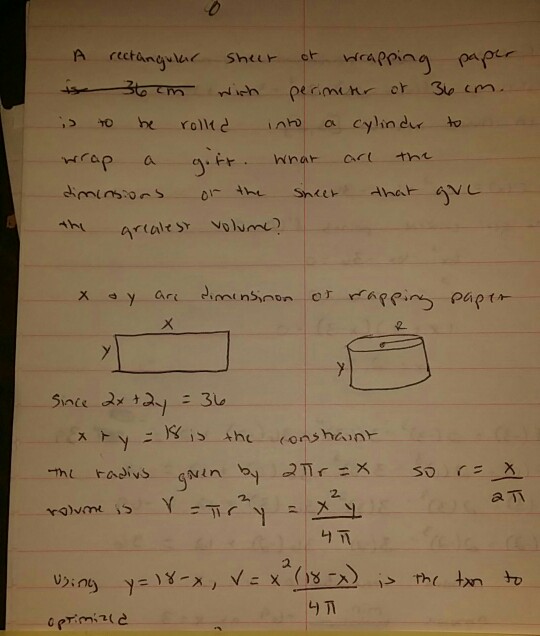 A rectangular sheet of wrapping paper
is 36 cm with perimeter of 36 cm.
is to be rolled into a cylinder to
wrap a gift. What are the
dimensions of the sheet that give
the greatest volume?
x & y are dimension of wrapping paper
x
R
y
y
Since 2x + 2y = 36
x + y = 18 is the constraint
The radius given by 2πr = x so r = x/2π
volume is V = πr²y = x²y/4π
Using y = 18-x, V = x²(18-x)/4π is the fxn to
optimized